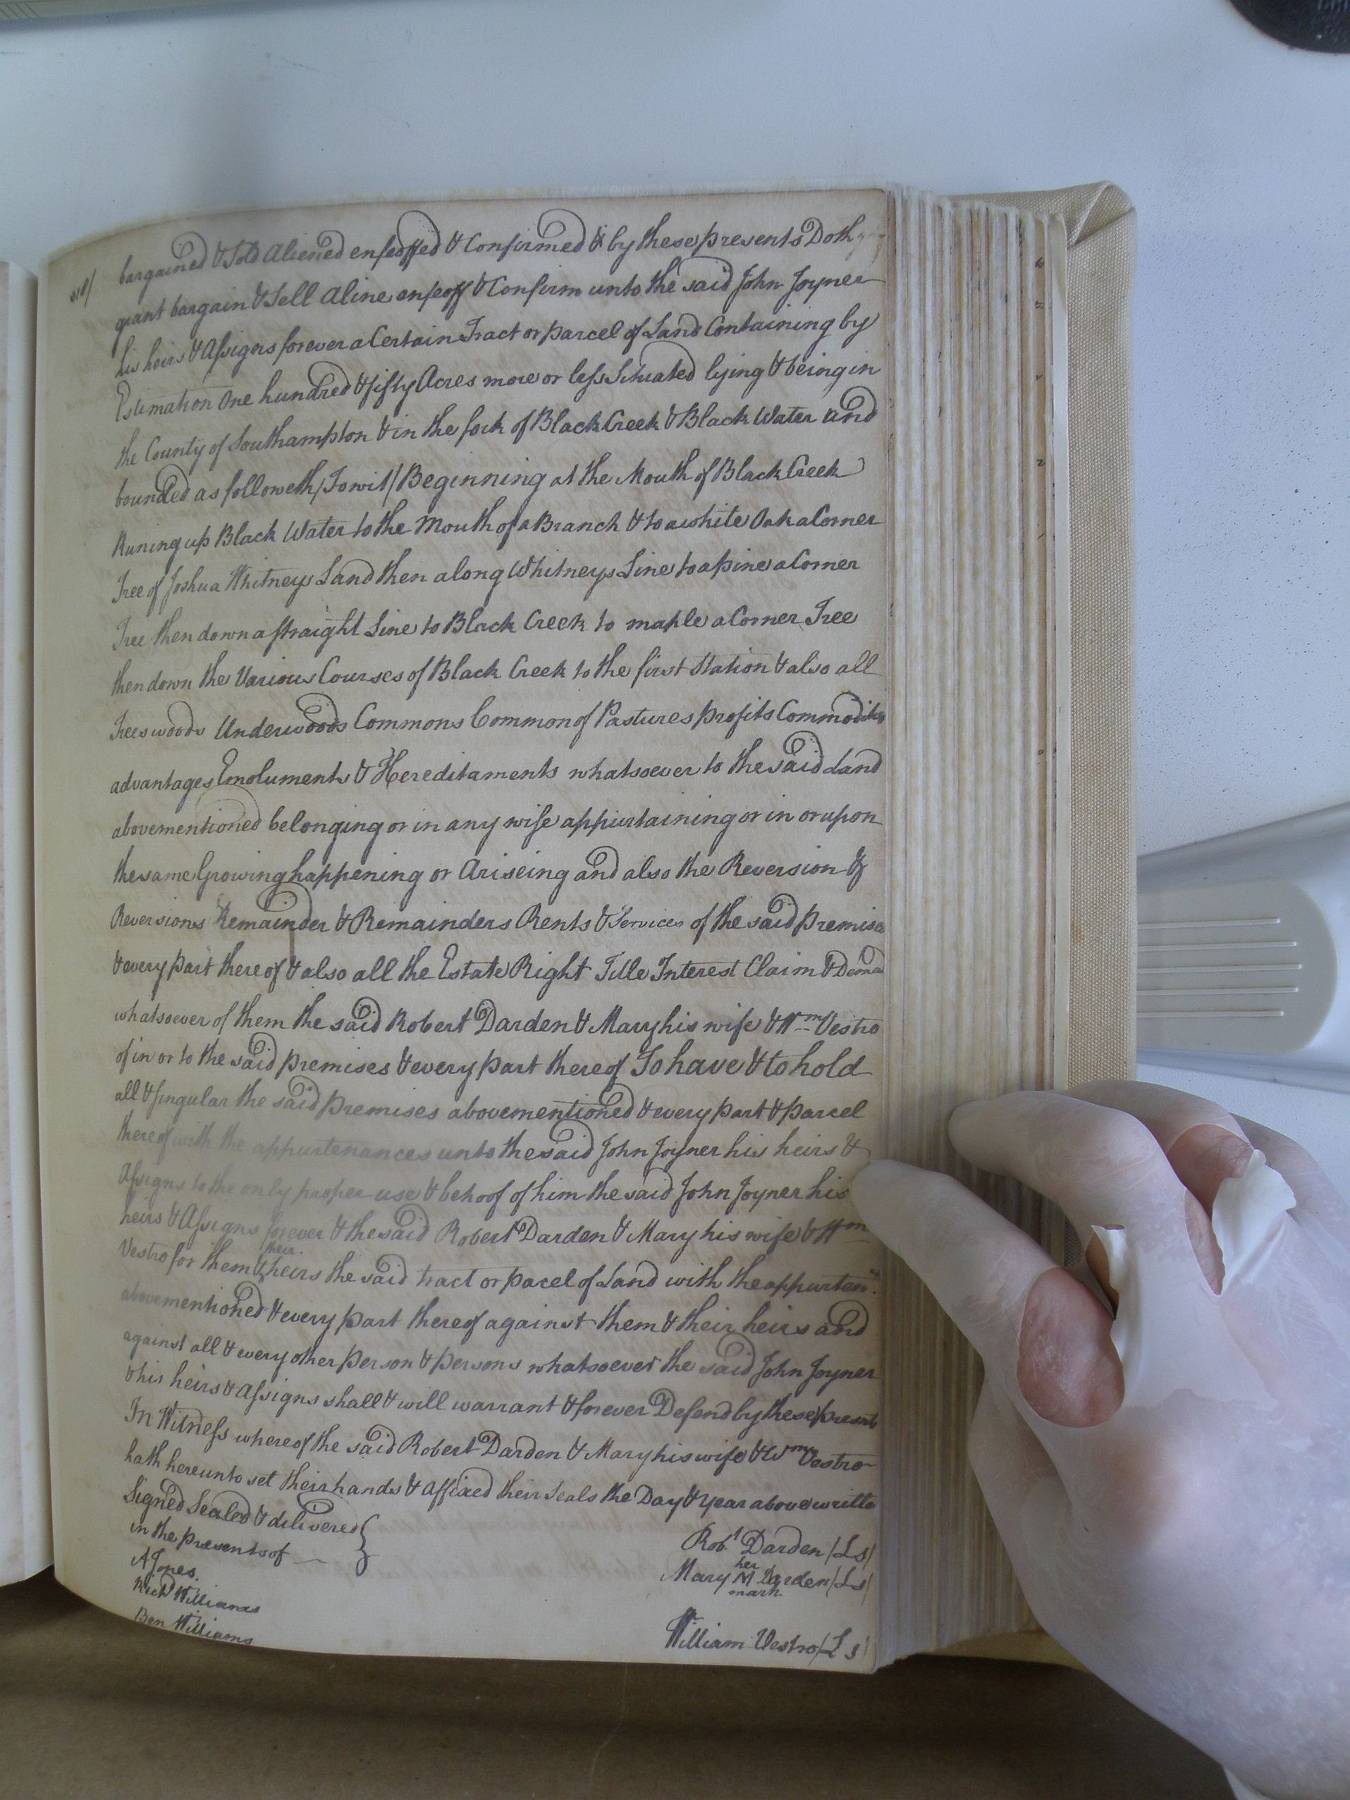 bargained & Sold Aliened enfeoffed & Confirmed & by these presents Doth
grant bargain & Sell Aline enfeoff & Confirm unto the said John Joyner
his heirs & Assigns forever a Certain Tract or parcel of Land Containing by
Estimation One hundred & fifty Acres more or less Situated lying & being in
the County of Southampton & in the fork of Black Creek & Black Water and
bounded as followeth/Towit/ Beginning at the Mouth of Black Creek
Runing up Black Water to the Mouth of a Branch & to a white Oak a Corner
Tree of Joshua Whitneys Land then along Whitneys Line to a pine a Corner
Tree then down a straight Line to Black Creek to maple a Corner Tree
then down the Various Courses of Black Creek to the first Station & also all
Trees woods Underwoods Commons Common of Pastures profits Commodities
advantages Emoluments & Hereditaments whatsoever to the said Land
abovementioned belonging or in any wise appurtaining or in or upon
the same Growing happening or Ariseing and also the Reversion &
Reversions Remainder & Remainders Rents & Services of the said premises
& every part thereof & also all the Estate Right Title Interest Claim & Demand
whatsoever of them the said Robert Darden & Mary his wife & Wm Vestro
of in or to the said premises & every part thereof To have & to hold
all & singular the said premises abovementioned & every part & parcel
thereof with the appurtenances unto the said John Joyner his heirs &
Assigns to the only proper use & behoof of him the said John Joyner his
heirs & Assigns forever & the said Robert Darden & Mary his wife & Wm
Vestro for them & their heirs the said tract or pacel of Land with the appurten:s
abovementioned & every part thereof against them & their heirs and
against all & every other person & persons whatsoever the said John Joyner
& his heirs & Assigns shall & will warrant & forever Defend by these presents
In Witness whereof the said Robert Darden & Mary his wife & Wm Vestro
hath hereunto set their hands & affixed their Seals the Day & Year above written
Signed Sealed & delivered
in the presents of
Robt Darden /Ls/
A Jones.
Mary her M Darden /Ls/
mark
Richd Williams
Ben Williams
William Vestro /Ls/